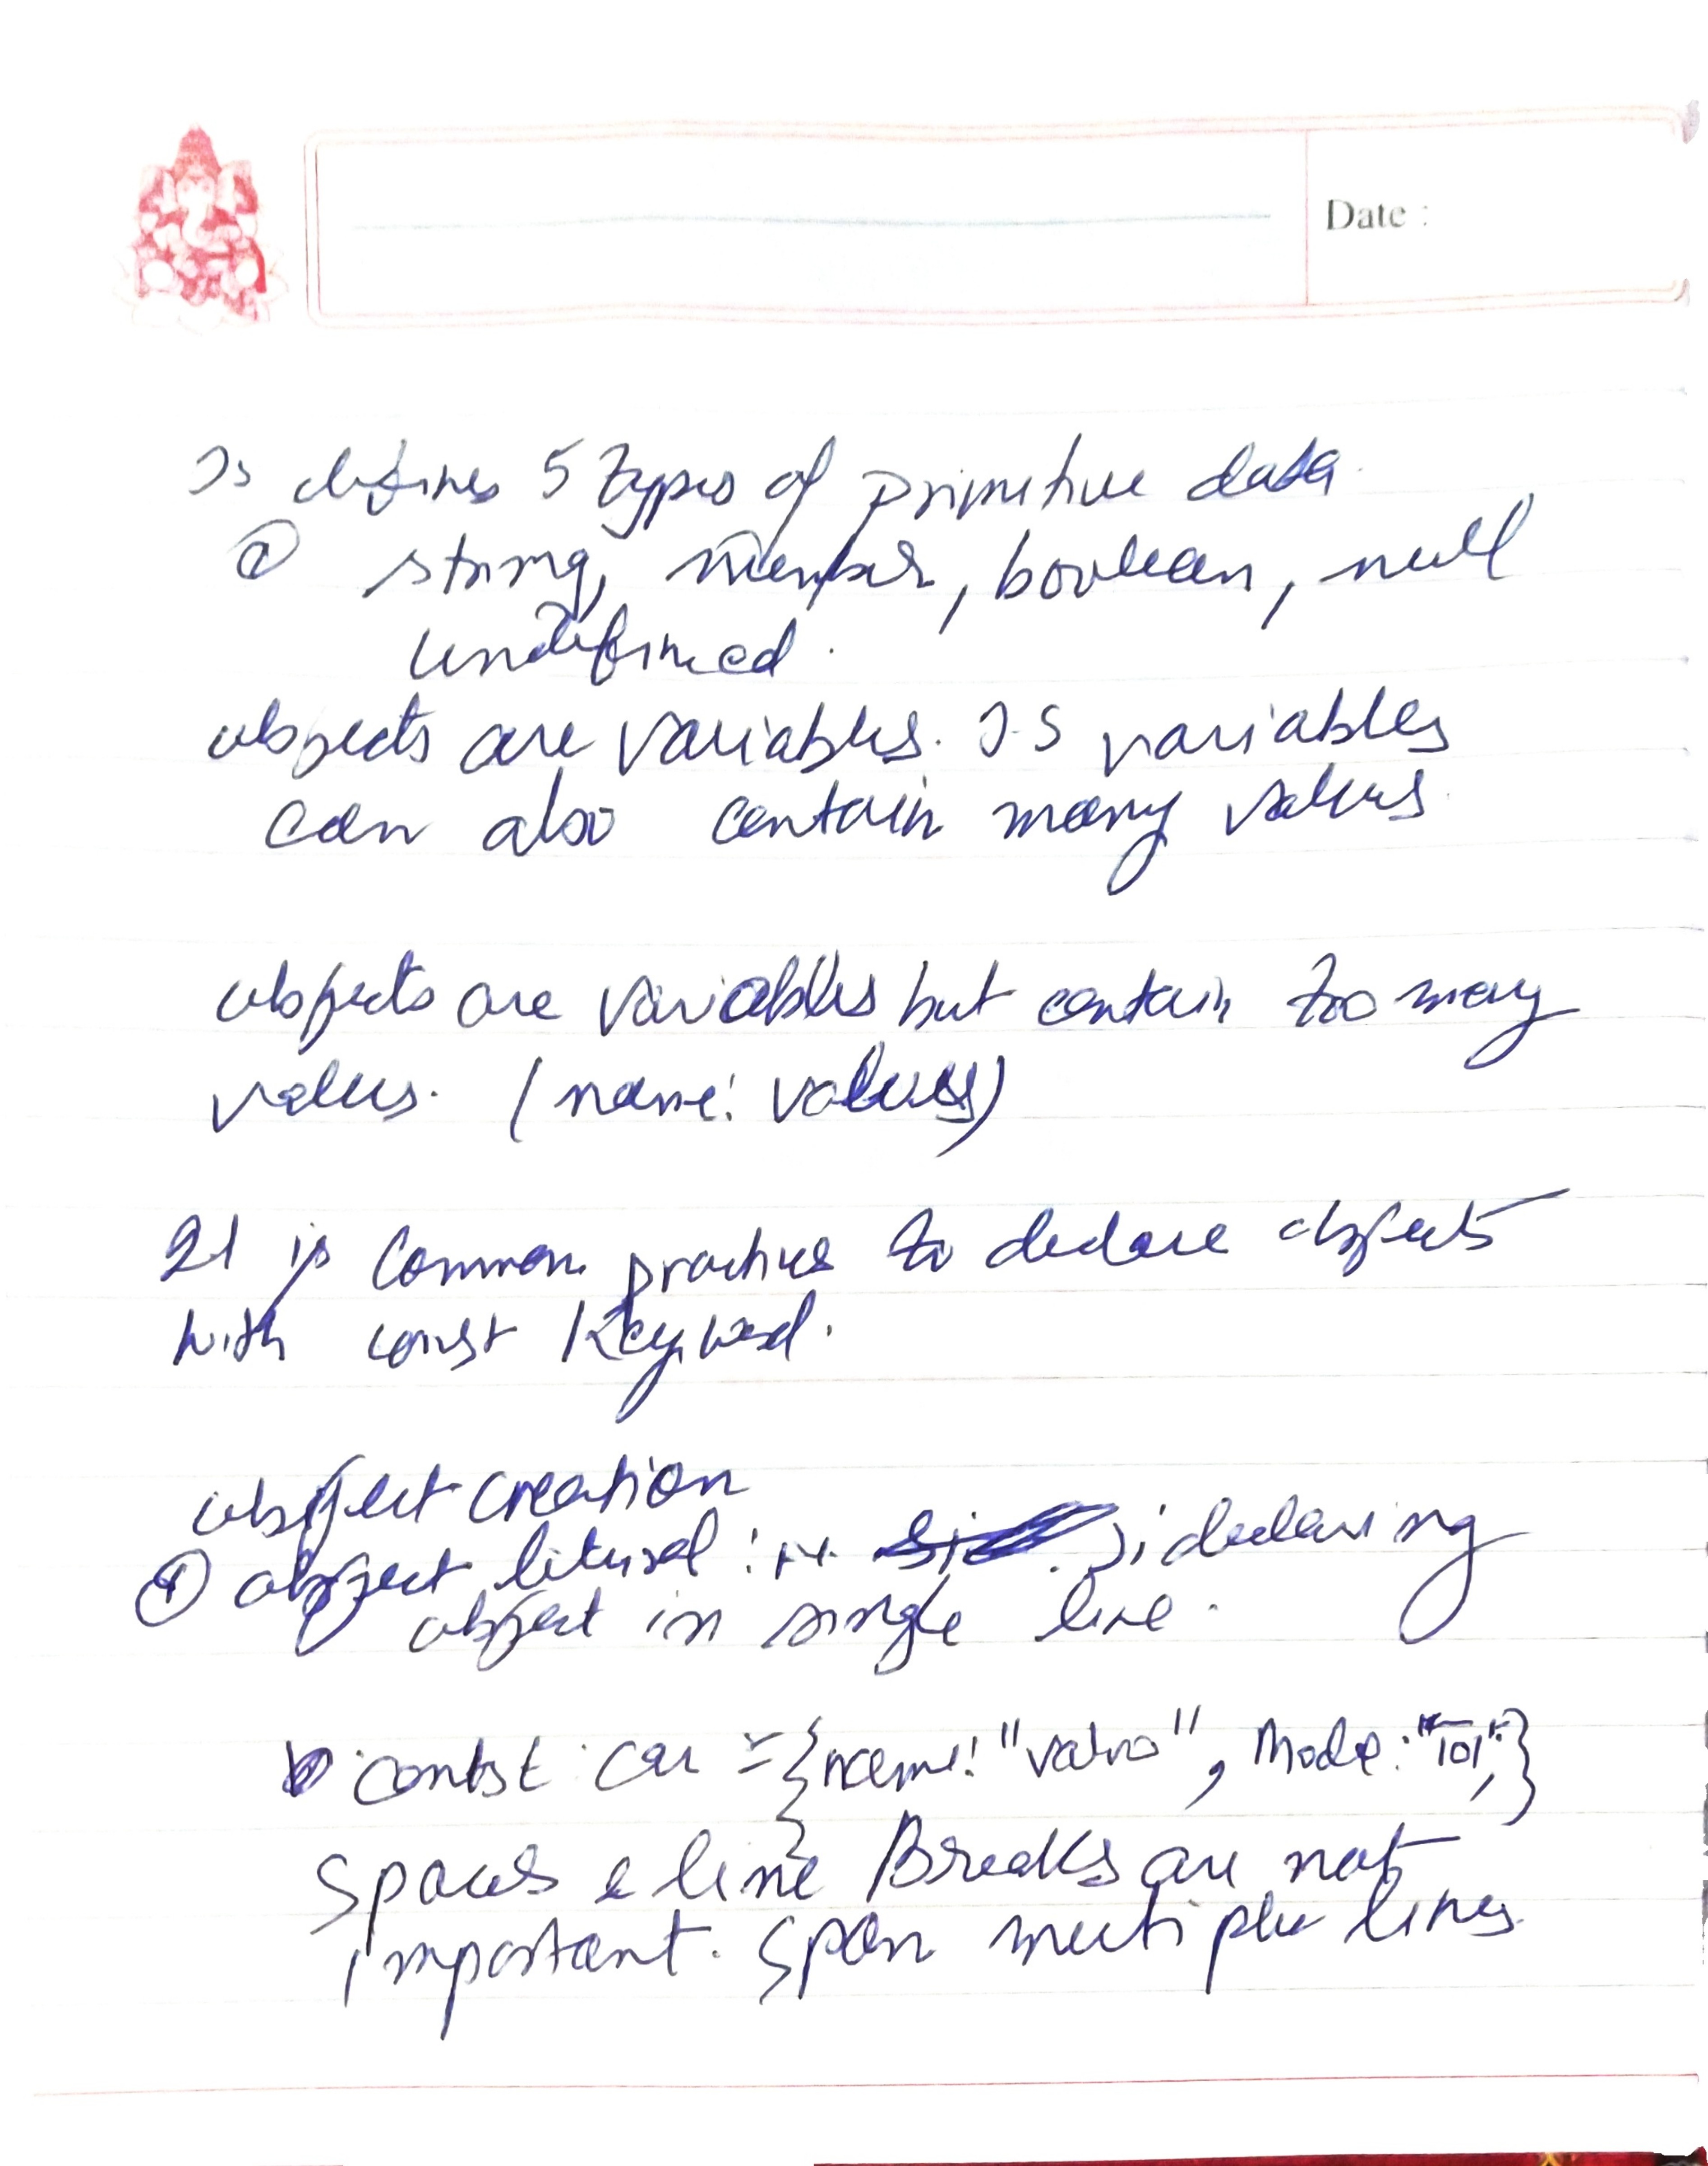 Date :
Js defines 5 types of primitive data
@ string, number, boolean, null
undefined.
objects are variables. J.S variables
can also contain many values.
objects are variables but contain too many
values. (name: values)
It is Common practice to declare objects
with const Keyword.
object creation
① object literal : declaring
object in single line.
const car = {name: "valvo", Mode: "101",}
Spaces & line Breaks are not
important. Span multiple lines.